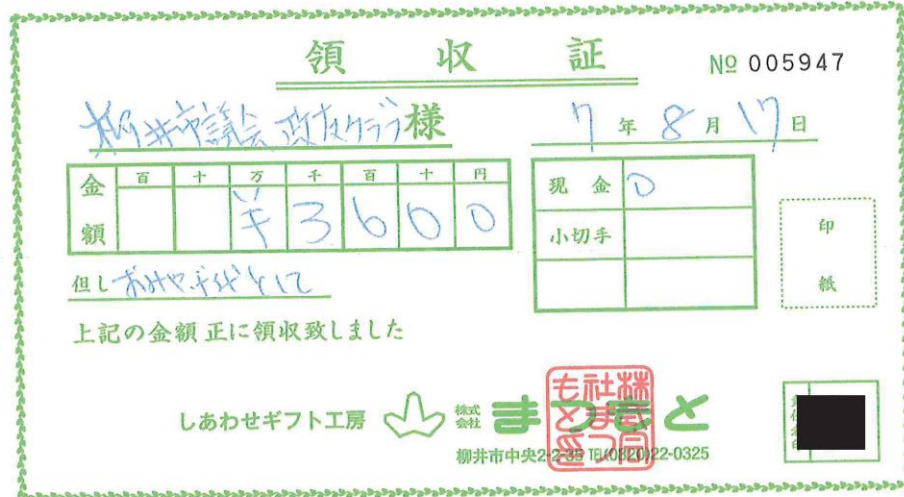 領収証
№ 005947
柳井市議会 政友クラブ様
7年8月17日
金額 百 十 万 千 百 十 円
¥3600
現金 0
小切手
印紙
但し おみやげ代として
上記の金額正に領収致しました
しあわせギフト工房 株式会社 まつもと
柳井市中央2-2-35 TEL(0820)22-0325
株式会社まつもと印